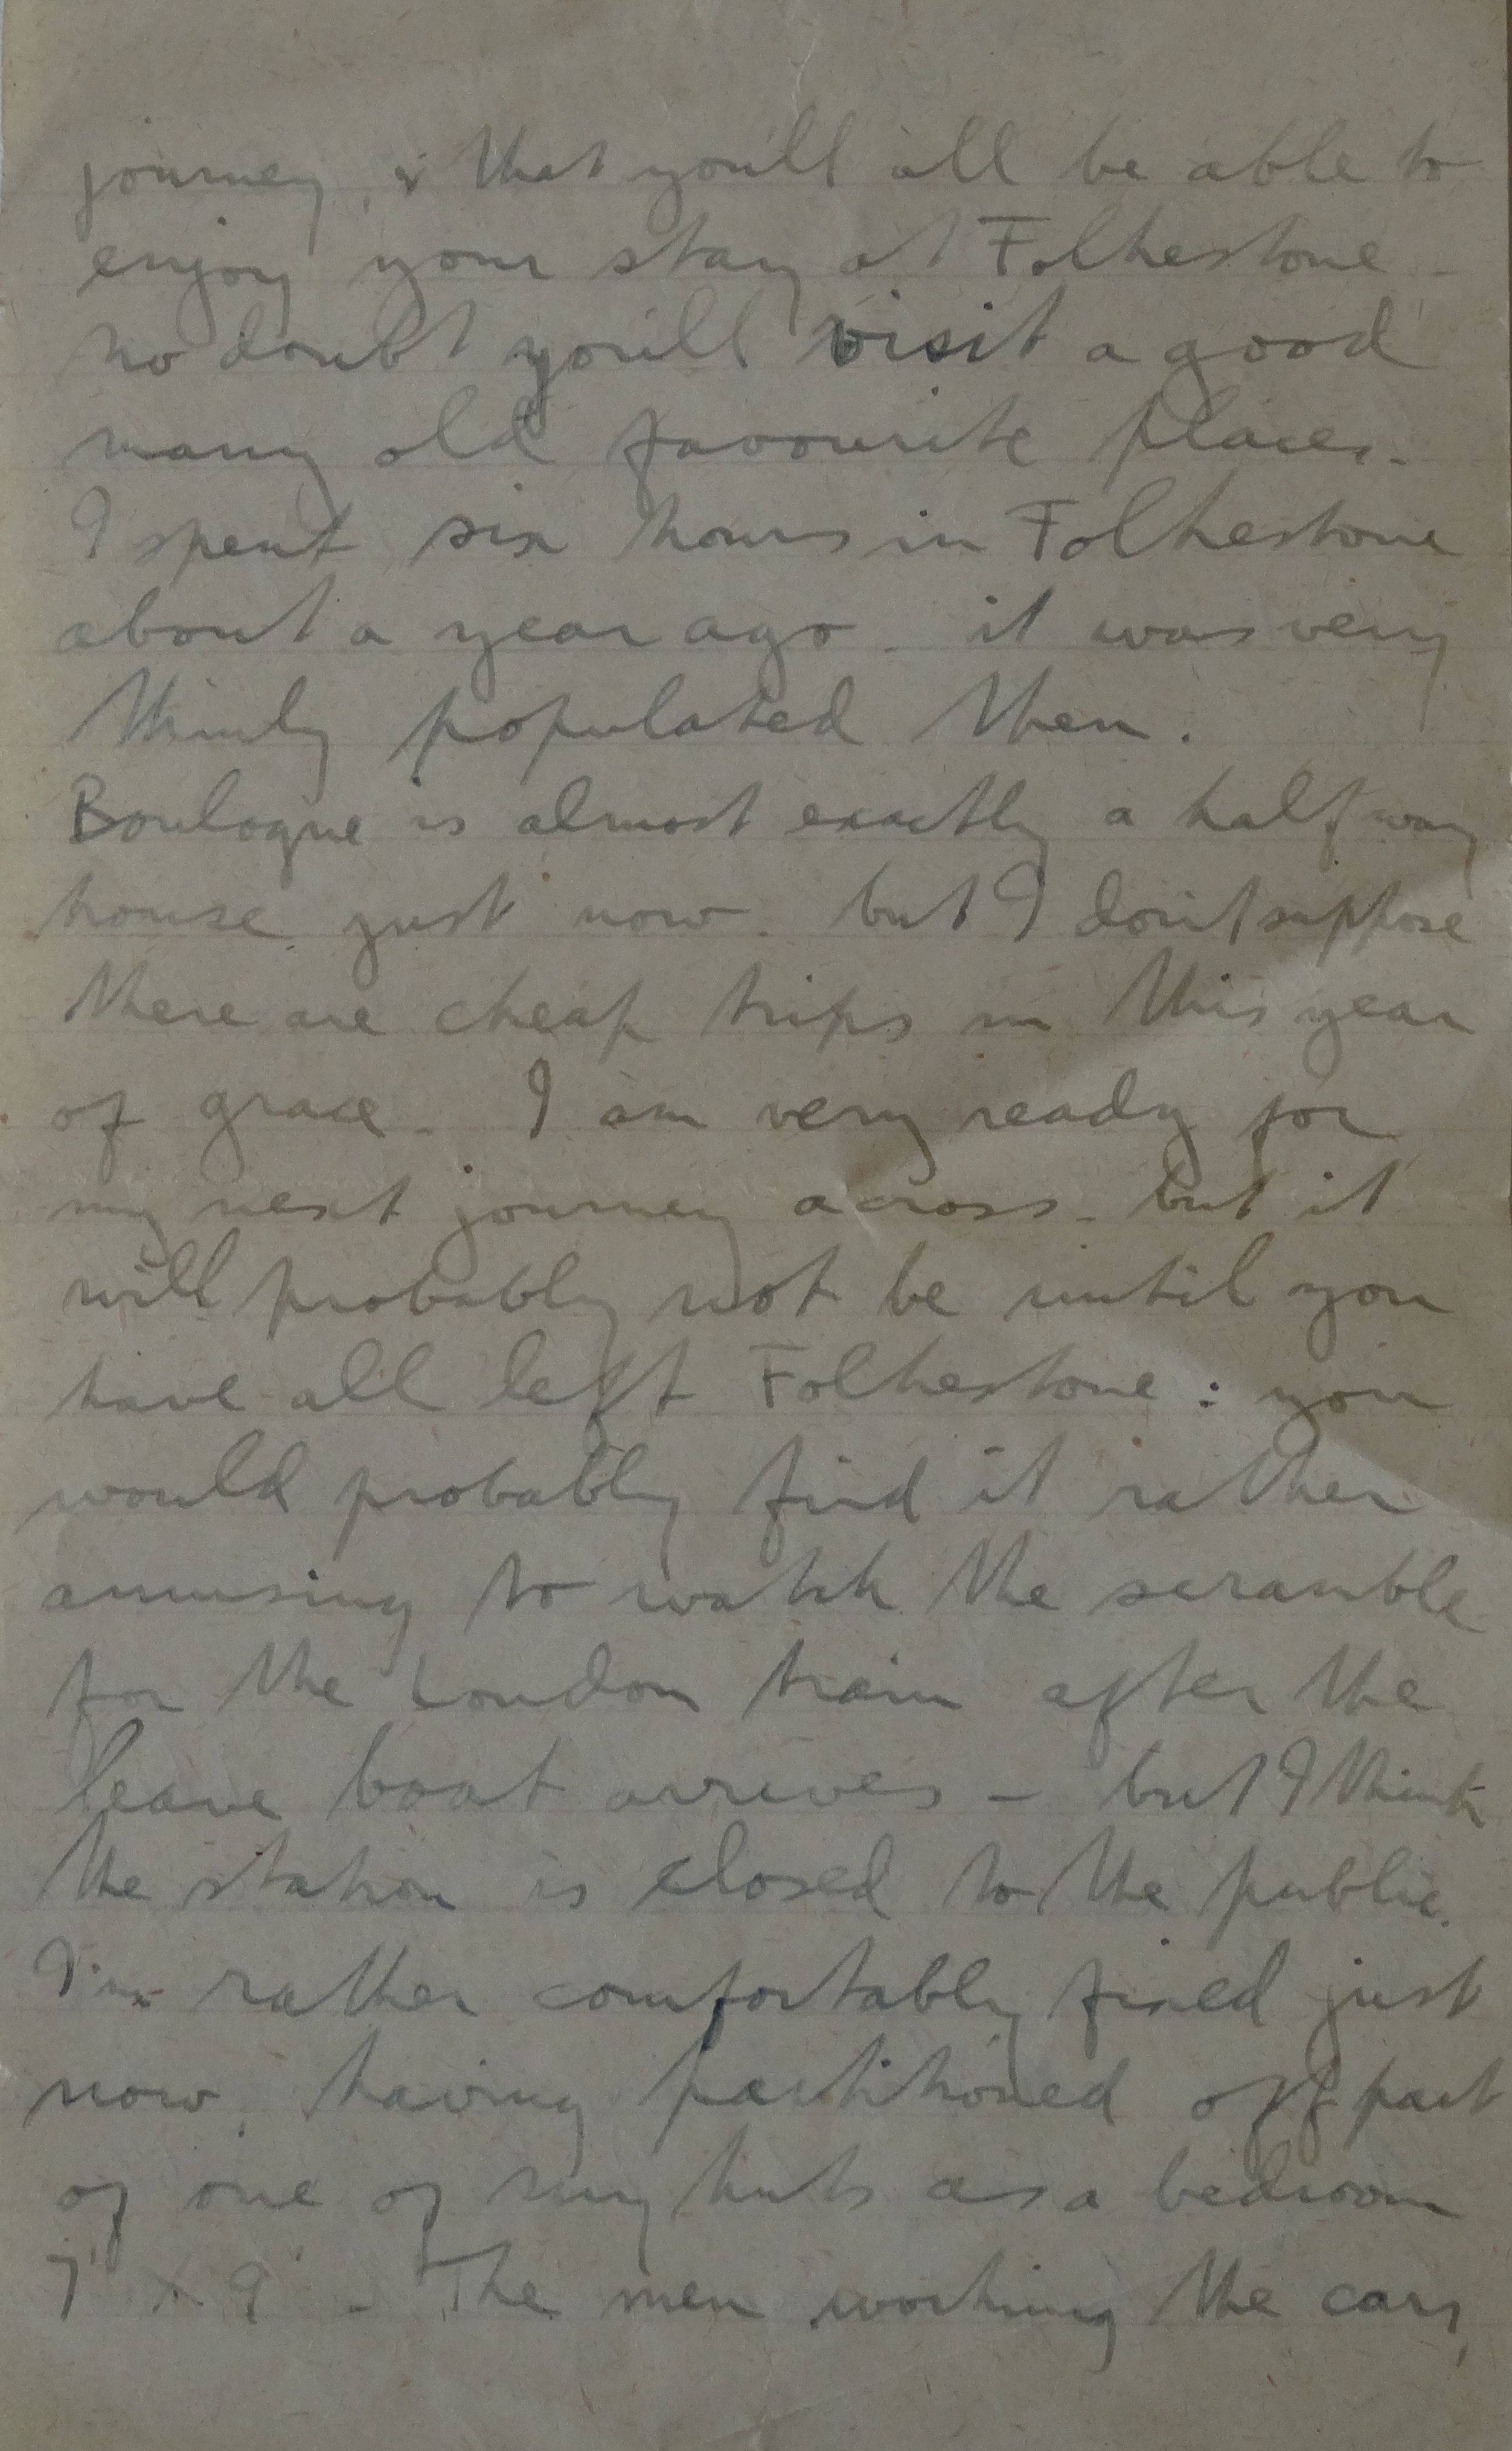 journey, & that you'll all be able to
enjoy your stay at Folkestone -
no doubt you'll visit a good
many old favourite places.
I spent six hours in Folkestone
about a year ago. it was very
thinly populated then.
Boulogne is almost exactly a half way
house just now. but I don't suppose
there are cheap trips in this year
of grace. I am very ready for
my next journey across - but it
will probably not be until you
have all left Folkestone : you
would probably find it rather
amusing to watch the scramble
for the London train after the
leave boat arrives - but I think
the station is closed to the public.
I'm rather comfortably fixed just
now, having partitioned off part
of one of my huts as a bedroom
7' x 9' - The men working the cars,